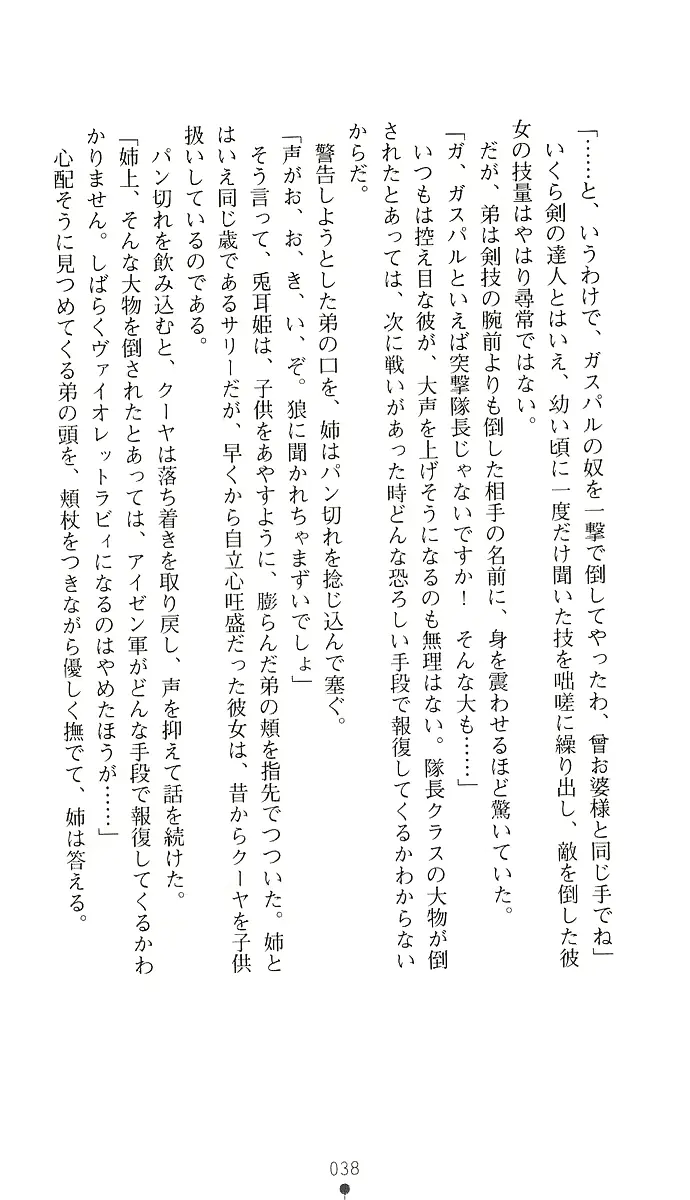 「……と、いうわけで、ガスパルの奴を一撃で倒してやったわ、曾お婆様と同じ手でね」
いくら剣の達人とはいえ、幼い頃に一度だけ聞いた技を咄嗟に繰り出し、敵を倒した彼
女の技量はやはり尋常ではない。
だが、弟は剣技の腕前よりも倒した相手の名前に、身を震わせるほど驚いていた。
「ガ、ガスパルといえば突撃隊長じゃないですか！　そんな大も……」
いつもは控え目な彼が、大声を上げそうになるのも無理はない。隊長クラスの大物が倒
されたとあっては、次に戦いがあった時どんな恐ろしい手段で報復してくるかわからない
からだ。
警告しようとした弟の口を、姉はパン切れを捻じ込んで塞ぐ。
「声がお、お、き、い、ぞ。狼に聞かれちゃまずいでしょ」
そう言って、兎耳姫は、子供をあやすように、膨らんだ弟の頬を指先でつついた。姉と
はいえ同じ歳であるサリーだが、早くから自立心旺盛だった彼女は、昔からクーヤを子供
扱いしているのである。
パン切れを飲み込むと、クーヤは落ち着きを取り戻し、声を抑えて話を続けた。
「姉上、そんな大物を倒されたとあっては、アイゼン軍がどんな手段で報復してくるかわ
かりません。しばらくヴァイオレットラビィになるのはやめたほうが……」
心配そうに見つめてくる弟の頭を、頬杖をつきながら優しく撫でて、姉は答える。
038